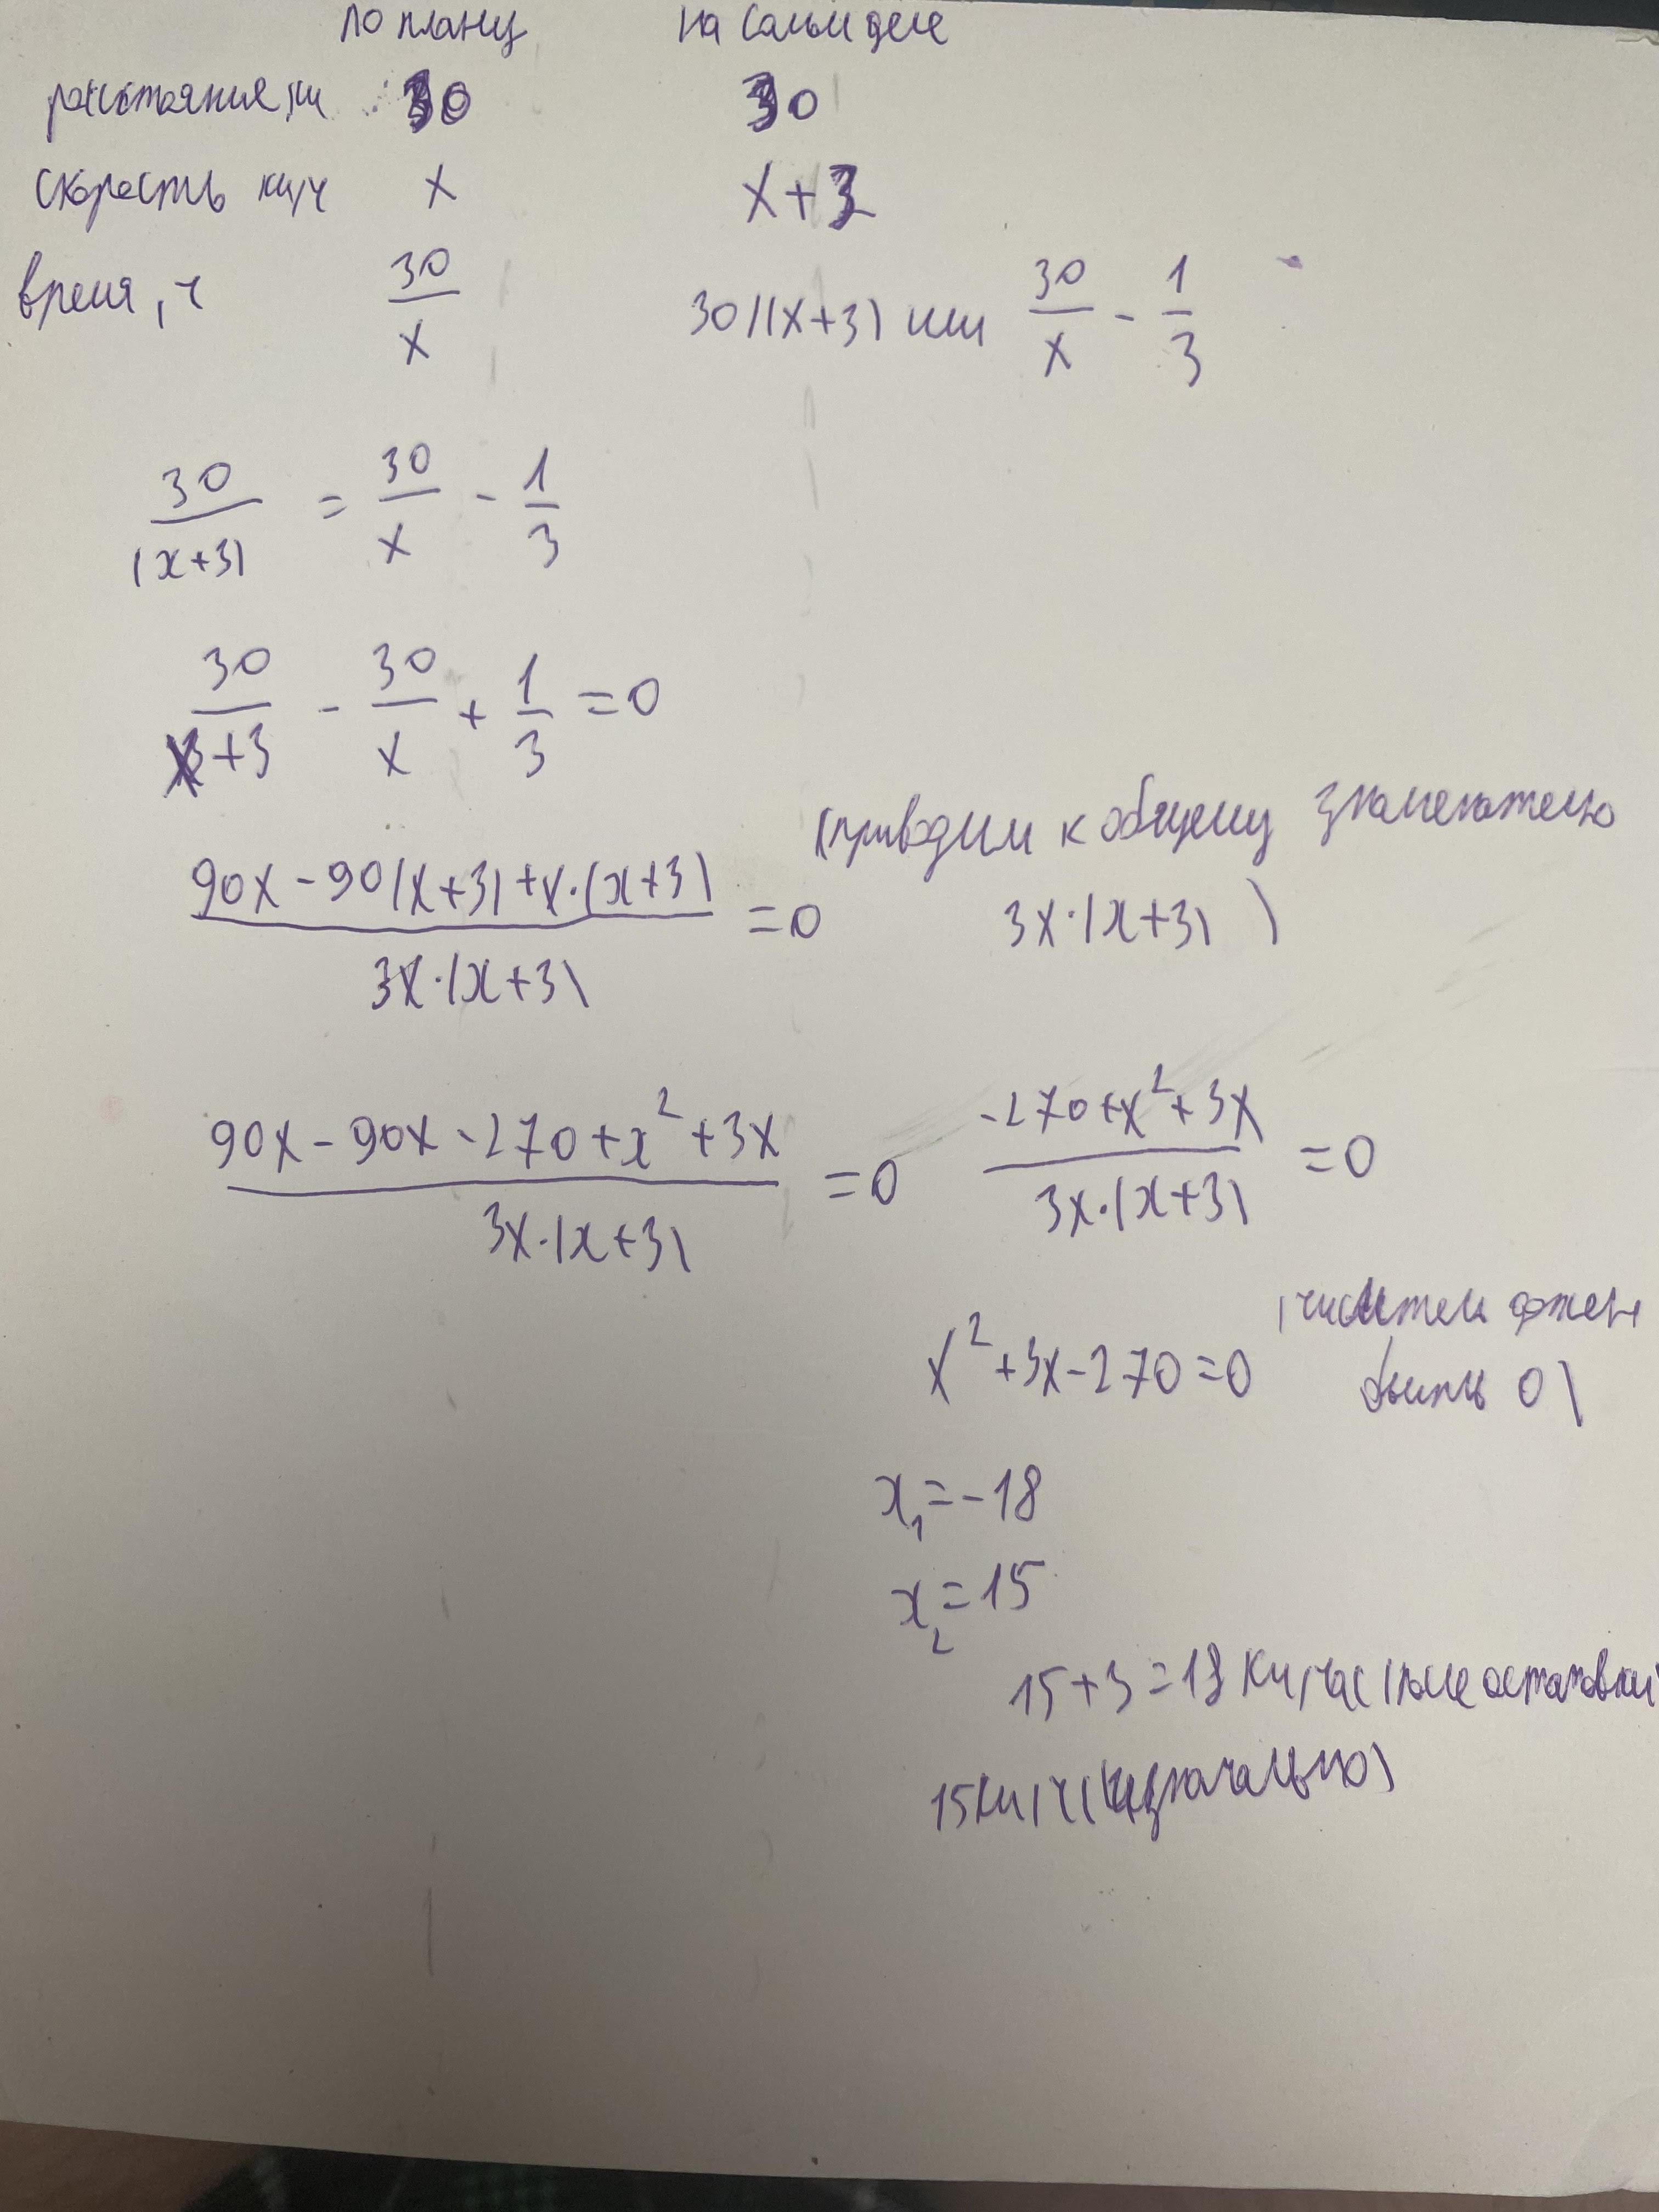 по плану на самом деле
расстояние, км 30 30
скорость км/ч x x+3
время, ч 30/x 30/(x+3) или 30/x - 1/3
30/(x+3) = 30/x - 1/3
30/x+3 - 30/x + 1/3 = 0
(приводим к общему знаменателю
90x - 90(x+3) + x·(x+3) / 3x·(x+3) = 0 3x·(x+3) )
90x - 90x - 270 + x² + 3x / 3x·(x+3) = 0 -270 + x² + 3x / 3x·(x+3) = 0
x² + 3x - 270 = 0 (числитель должен быть 0)
x₁ = -18
x₂ = 15
15+3 = 18 км/час (после остановки
15 км/ч (изначально)